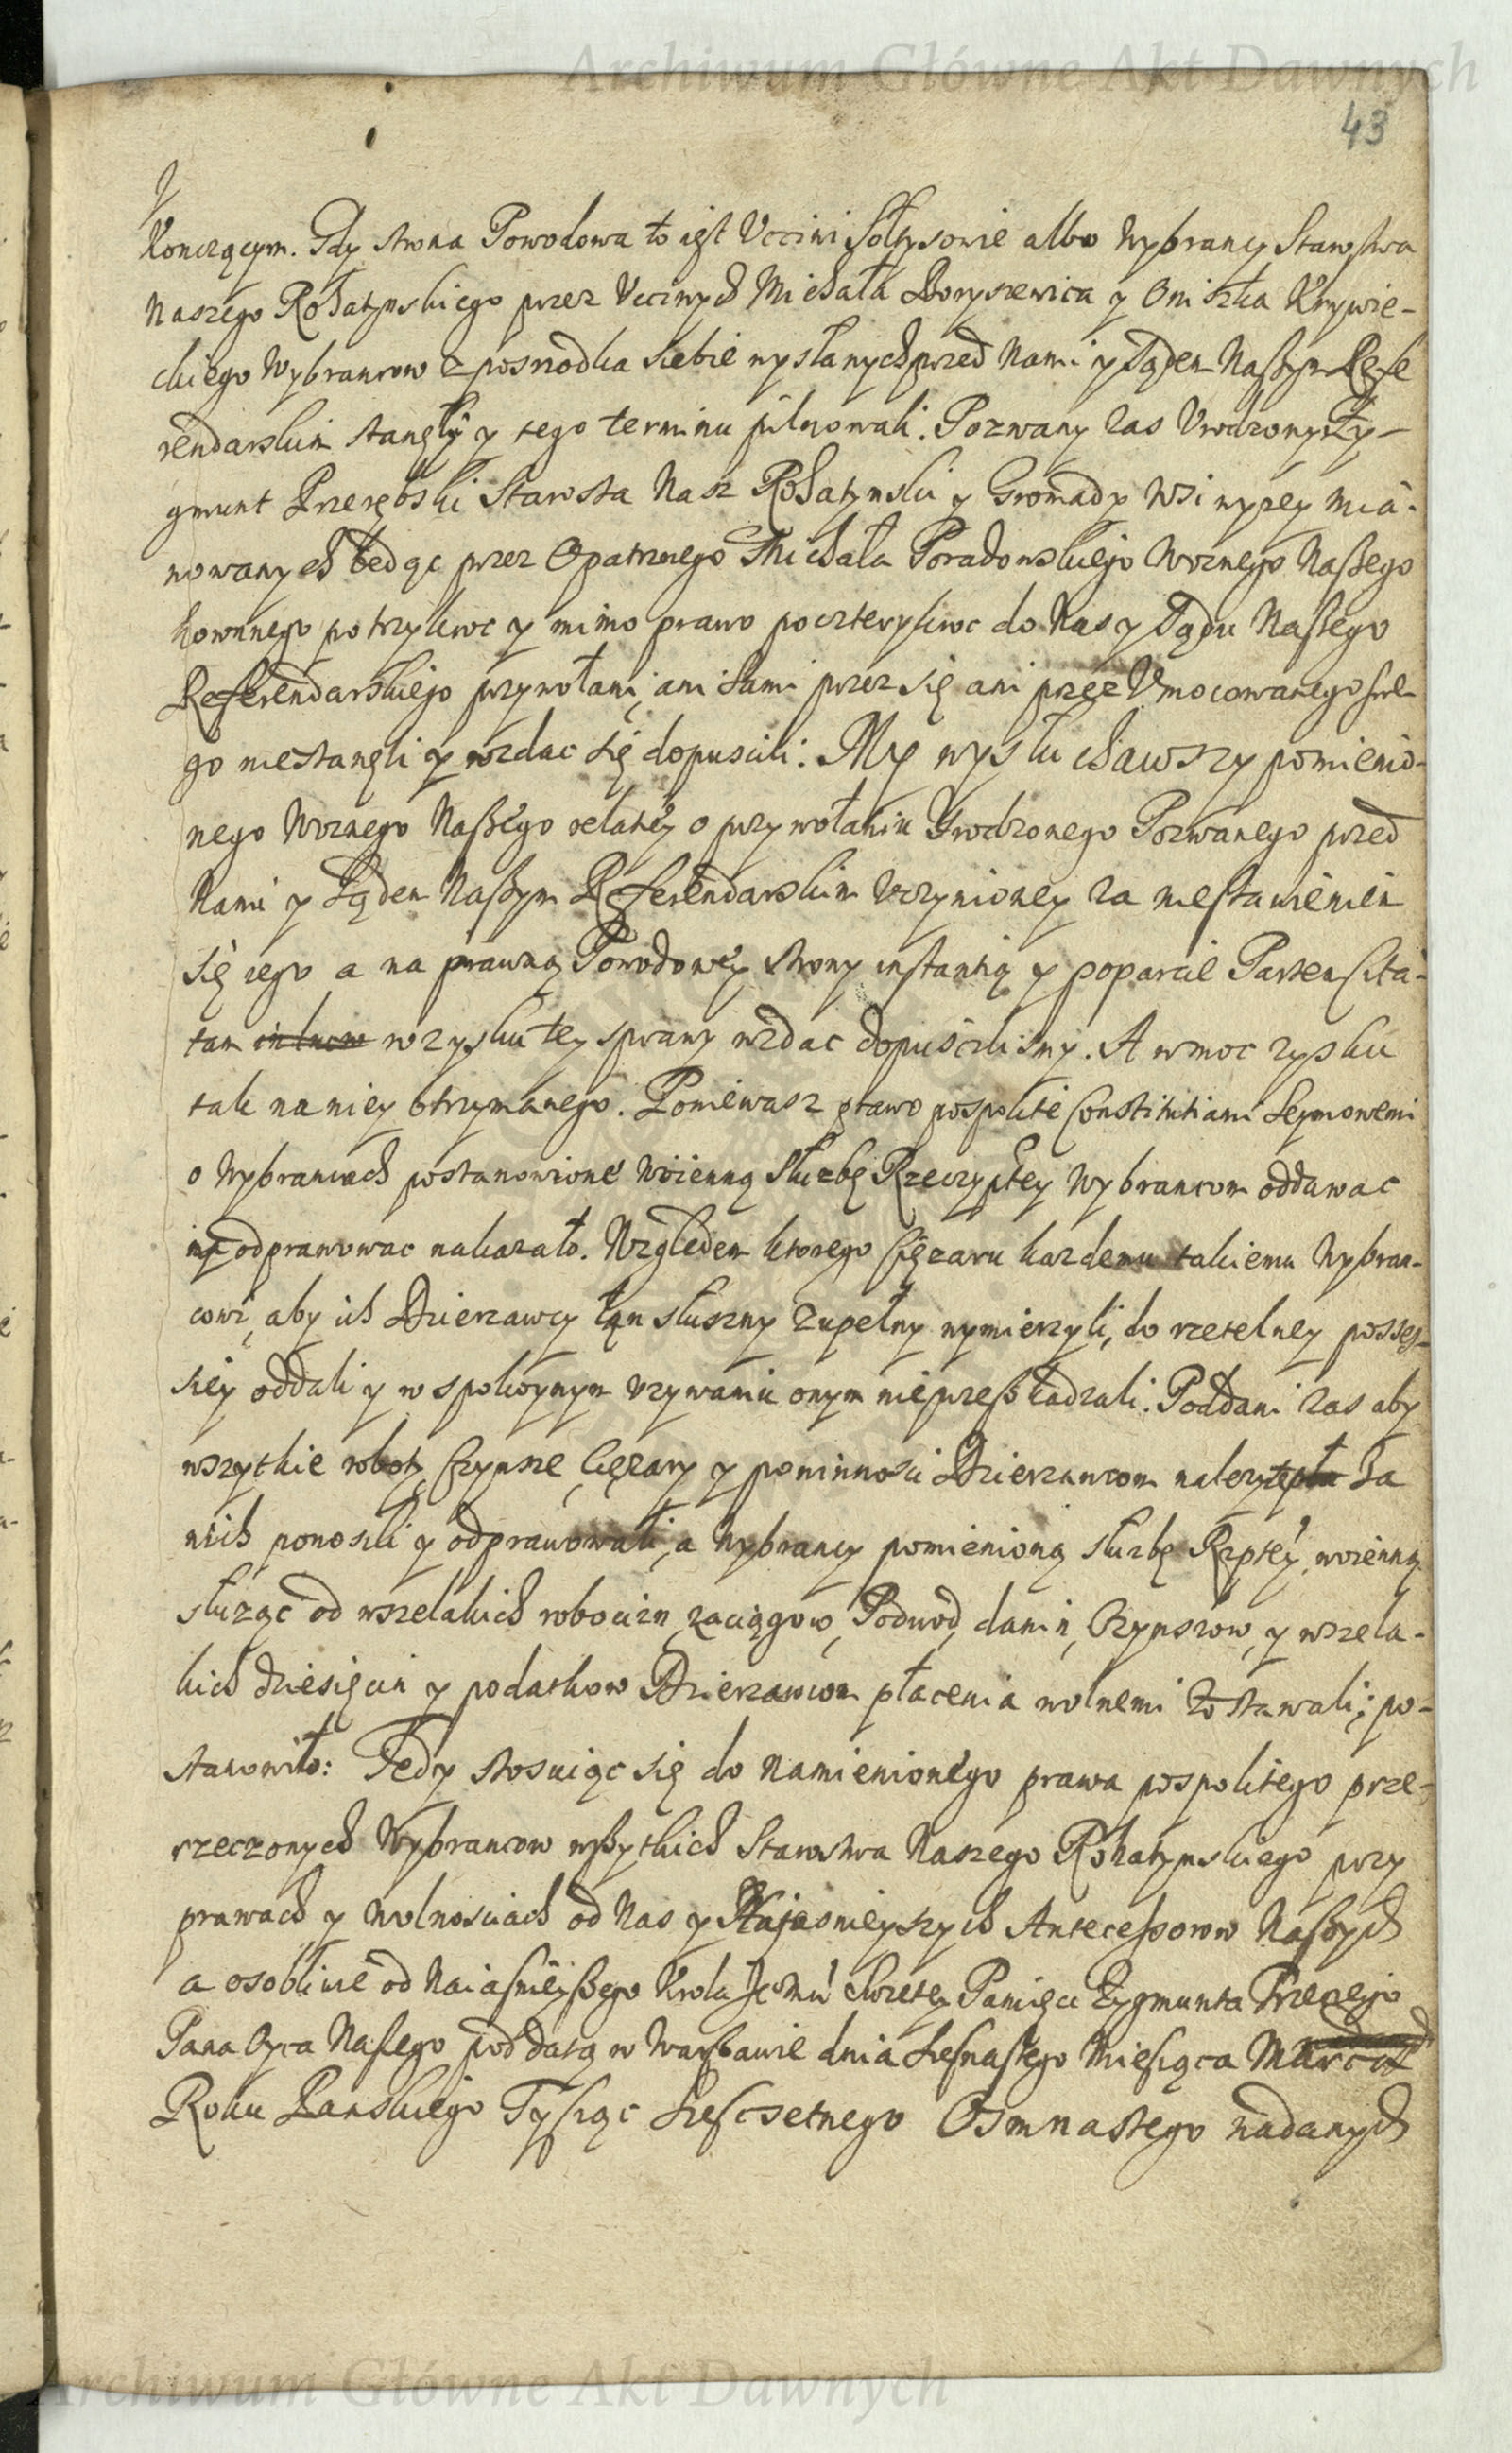 Archiwum Główne Akt Dawnych
43
Konczącym. Gdy strona Powodowa to iest Uczciwi Sołtysowie albo Wybrancy Starostwa
Naszego Rohatynskiego przez Uczciwych Michała Boryszewica y Oniszka Krywie-
ckiego Wybrancow z posrodka siebie wysłanych przed Nami y Sądem Naszym Refe
rendarskim stanęły y tego terminu pilnowali. Pozwany zas Urodzony Zy-
gmunt Przerębski Starosta Nasz Rohatynski y Gromady Wsi wyzey mia-
nowanych będąc przez Opatrznego Michała Poradowskiego Woznego Naszego
koronnego potrzykroc y mimo prawo poczterykroc do Nas y Sądu Naszego
Referendarskiego przywołani, ani sami przez się ani przez Umocowanego swe
go niestanęli y wzdac się dopuscili. My wysłuchawszy pomienio-
nego Woznego Naszego relatiey o przywołaniu Urodzonego Pozwanego przed
Nami y Sądem Naszym Referendarskim Uczynioney za niestawieniem
się iego a na prawną Powodowey strony instantią y poparcie Partem Cita-
tam w zysku tey sprawy wzdac dopuscilismy. A w moc zysku
tak na niey otrzymanego. Poniewasz prawo pospolite Constitutiami Seymowemi
o Wybrancach postanowione woienną Służbę Rzeczyptey Wybrancom oddawac
odprawowac nakazało. Względem ktorego Ciężaru kazdemu takiemu Wybran-
cowi, aby ich Dzierzawcy łan słuszny zupełny wymierzyli, do rzetelney posses-
siey oddali y w spokoynym uzywaniu onym nieprzeszkadzali. Poddani zas aby
wszytkie roboty, Czynsze, Ciężary y powinnosci Dzierzawcom nalezyte za
nich ponosili y odprawowali, a Wybrancy pomienioną służbę Rzptey woienną
służąc od wszelakich robocizn, zaciągow, Podwod, danin, Czynszow, y wszela-
kich dziesięcin y podatkow Dzierzawcom płacenia wolnemi zostawali; po-
stanowiło: Tedy stosuiąc się do namienionego prawa pospolitego prze-
rzeczonych Wybrancow wszytkich Starostwa Naszego Rohatynskiego przy
prawach y wolnosciach od Nas y Najasnieyszych Antecessorow Naszych
a osobliwie od Naiasnieyszego Krola Jeo Mci swietey Pamięci Zygmunta Trzeciego
Pana Oyca Naszego pod datą w Warszawie dnia szesnastego Miesiąca Marca
Roku Panskiego Tysiąc szescsetnego Osmnastego nadanych
Archiwum Główne Akt Dawnych